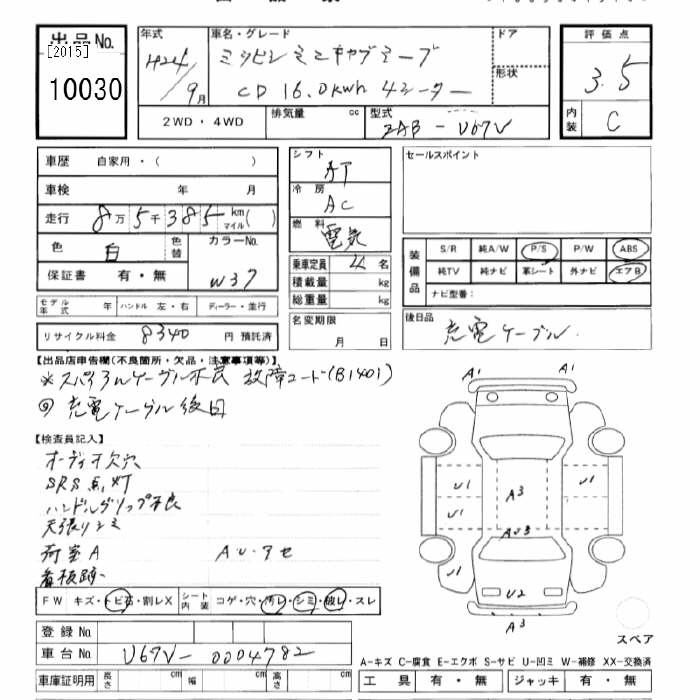 出品No.
[2015]
10030
年式
H24/9月
車名・グレード
ミツビシ ミニキャブミーブ
CD 16.0kwh 4シーター
ドア
形状
評価点
3.5
内装
C
2WD・4WD
排気量 cc
型式
ZAB-U67V
車歴 自家用・( )
車検 年 月
走行 8万5千385km マイル( )
色 白 色替
カラーNo.
W37
保証書 有・無
モデル年式 年 ハンドル 左・右 ディーラー・並行
リサイクル料金 8340 円 預託済
シフト
AT
冷房
AC
燃料
電気
乗車定員 4名
積載量 kg
総重量 kg
名変期限
月 日
セールスポイント
装備品
S/R 純A/W P/S P/W ABS
純TV 純ナビ 革シート 外ナビ エアB
ナビ型番:
後日品
充電ケーブル
【出品店申告欄(不良箇所・欠品・注意事項等)】
※スパイラルケーブル不良 故障コード(B1401)
充電ケーブル後日
【検査員記入】
オーディオ欠穴
SRS点灯
ハンドルグリップ不良
天張りシミ
荷室A AU・アセ
看板跡
FW キズ・トビ石・割レX シート内装 コゲ・穴・汚レ・シミ・破レ・スレ
登録No.
車台No. U67V-0004782
車庫証明用 長さ cm 幅 cm 高さ cm
A1 A1
U1 A3 U1
U1
AU3
U1
U2
A3
スペア
A-キズ C-腐食 E-エクボ S-サビ U-凹ミ W-補修 XX-交換済
工具 有・無 ジャッキ 有・無